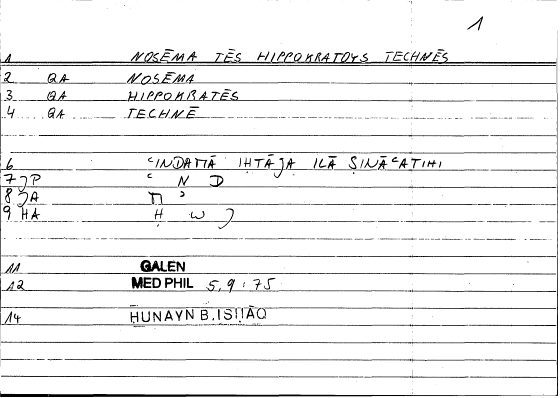 1
1 NOSĒMA TĒS HIPPOKRATOYS TECHNĒS
2 QA NOSĒMA
3 QA HIPPOKRATĒS
4 QA TECHNĒ
6 ʿINDAMĀ IḤTĀJA ILĀ ṢINĀʿATIHI
7 JP ʿ N D
8 JA M ʾ
9 HA Ḥ W J
11 GALEN
12 MED PHIL 5,9 : 75
14 ḤUNAYN B. ISḤĀQ